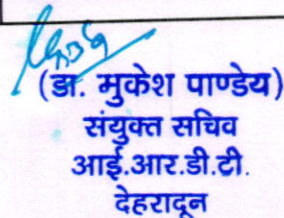 (डा. मुकेश पाण्डेय)
संयुक्त सचिव
आई.आर.डी.टी.
देहरादून